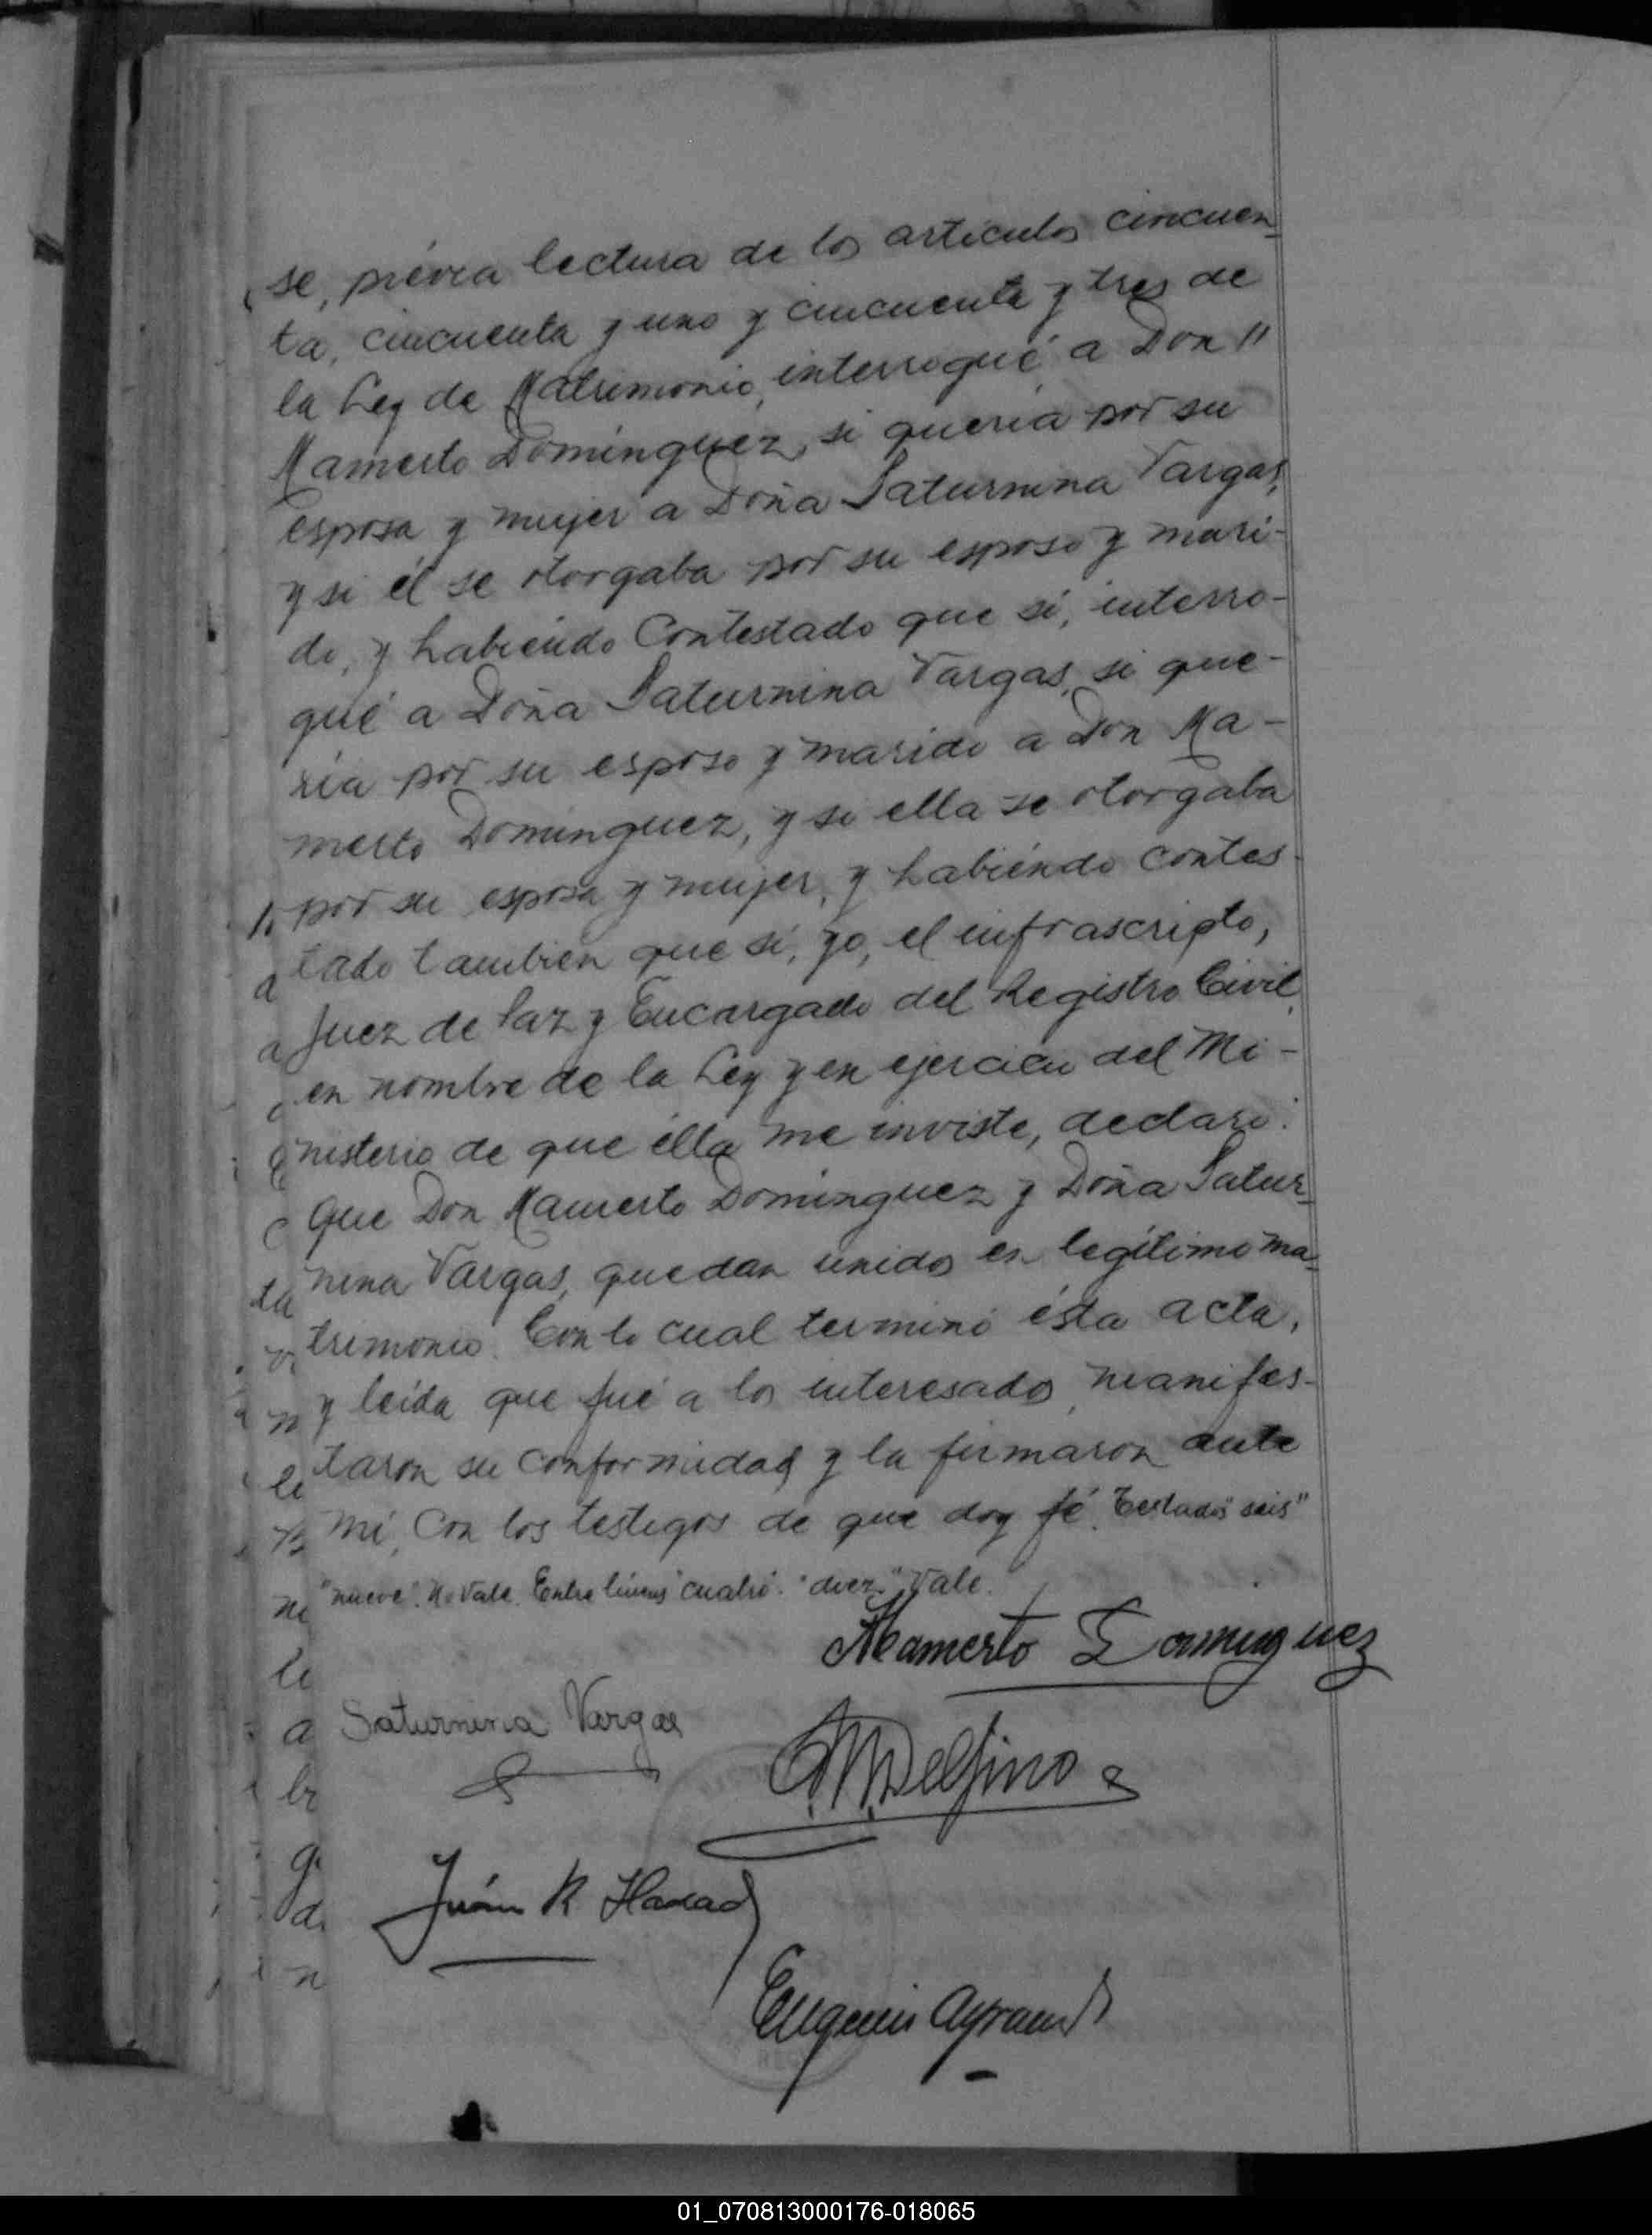 se, prévia lectura de los artículos cincuen-
ta, cincuenta y uno y cincuenta y tres de
la Ley de Matrimonio, interrogué a Don "
Mamerto Domínguez, si queria por su
esposa y mujer a Doña Saturnina Vargas,
y si él se otorgaba por su esposo y mari-
do, y habiendo contestado que sí, interro-
gué a Doña Saturnina Vargas, si que-
ría por su esposo y marido a Don Ma-
merto Dominguez, y si ella se otorgaba
por su esposa y mujer, y habiéndo contes-
tado tambien que sí, yo, el infrascripto,
Juez de Paz y Encargado del Registro Civil,
en nombre de la Ley y en ejercicio del Mi-
nisterio de que élla me inviste, declaro:
Que Don Mamerto Dominguez y Doña Satur-
nina Vargas, quedan unidos en legítimo ma-
trimonio. Con lo cual terminó ésta acta,
y leída que fué a los interesados, manifes-
taron su conformidad y la firmaron ante
mí, con los testigos de que doy fé. Testado "seis"
"nueve". No vale. Entre líneas "cuatro". "diez". Vale.
Mamerto Dominguez
Saturnina Vargas
Delfino
Juán R
Eugenio
01_070813000176-018065